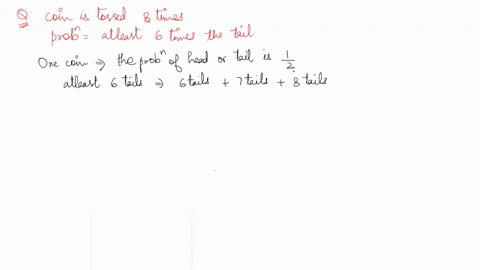 Q coin is tossed 8 times
probⁿ = atleast 6 times the tail
One coin ⇒ the probⁿ of head or tail is 1/2
atleast 6 tails ⇒ 6 tails + 7 tails + 8 tails